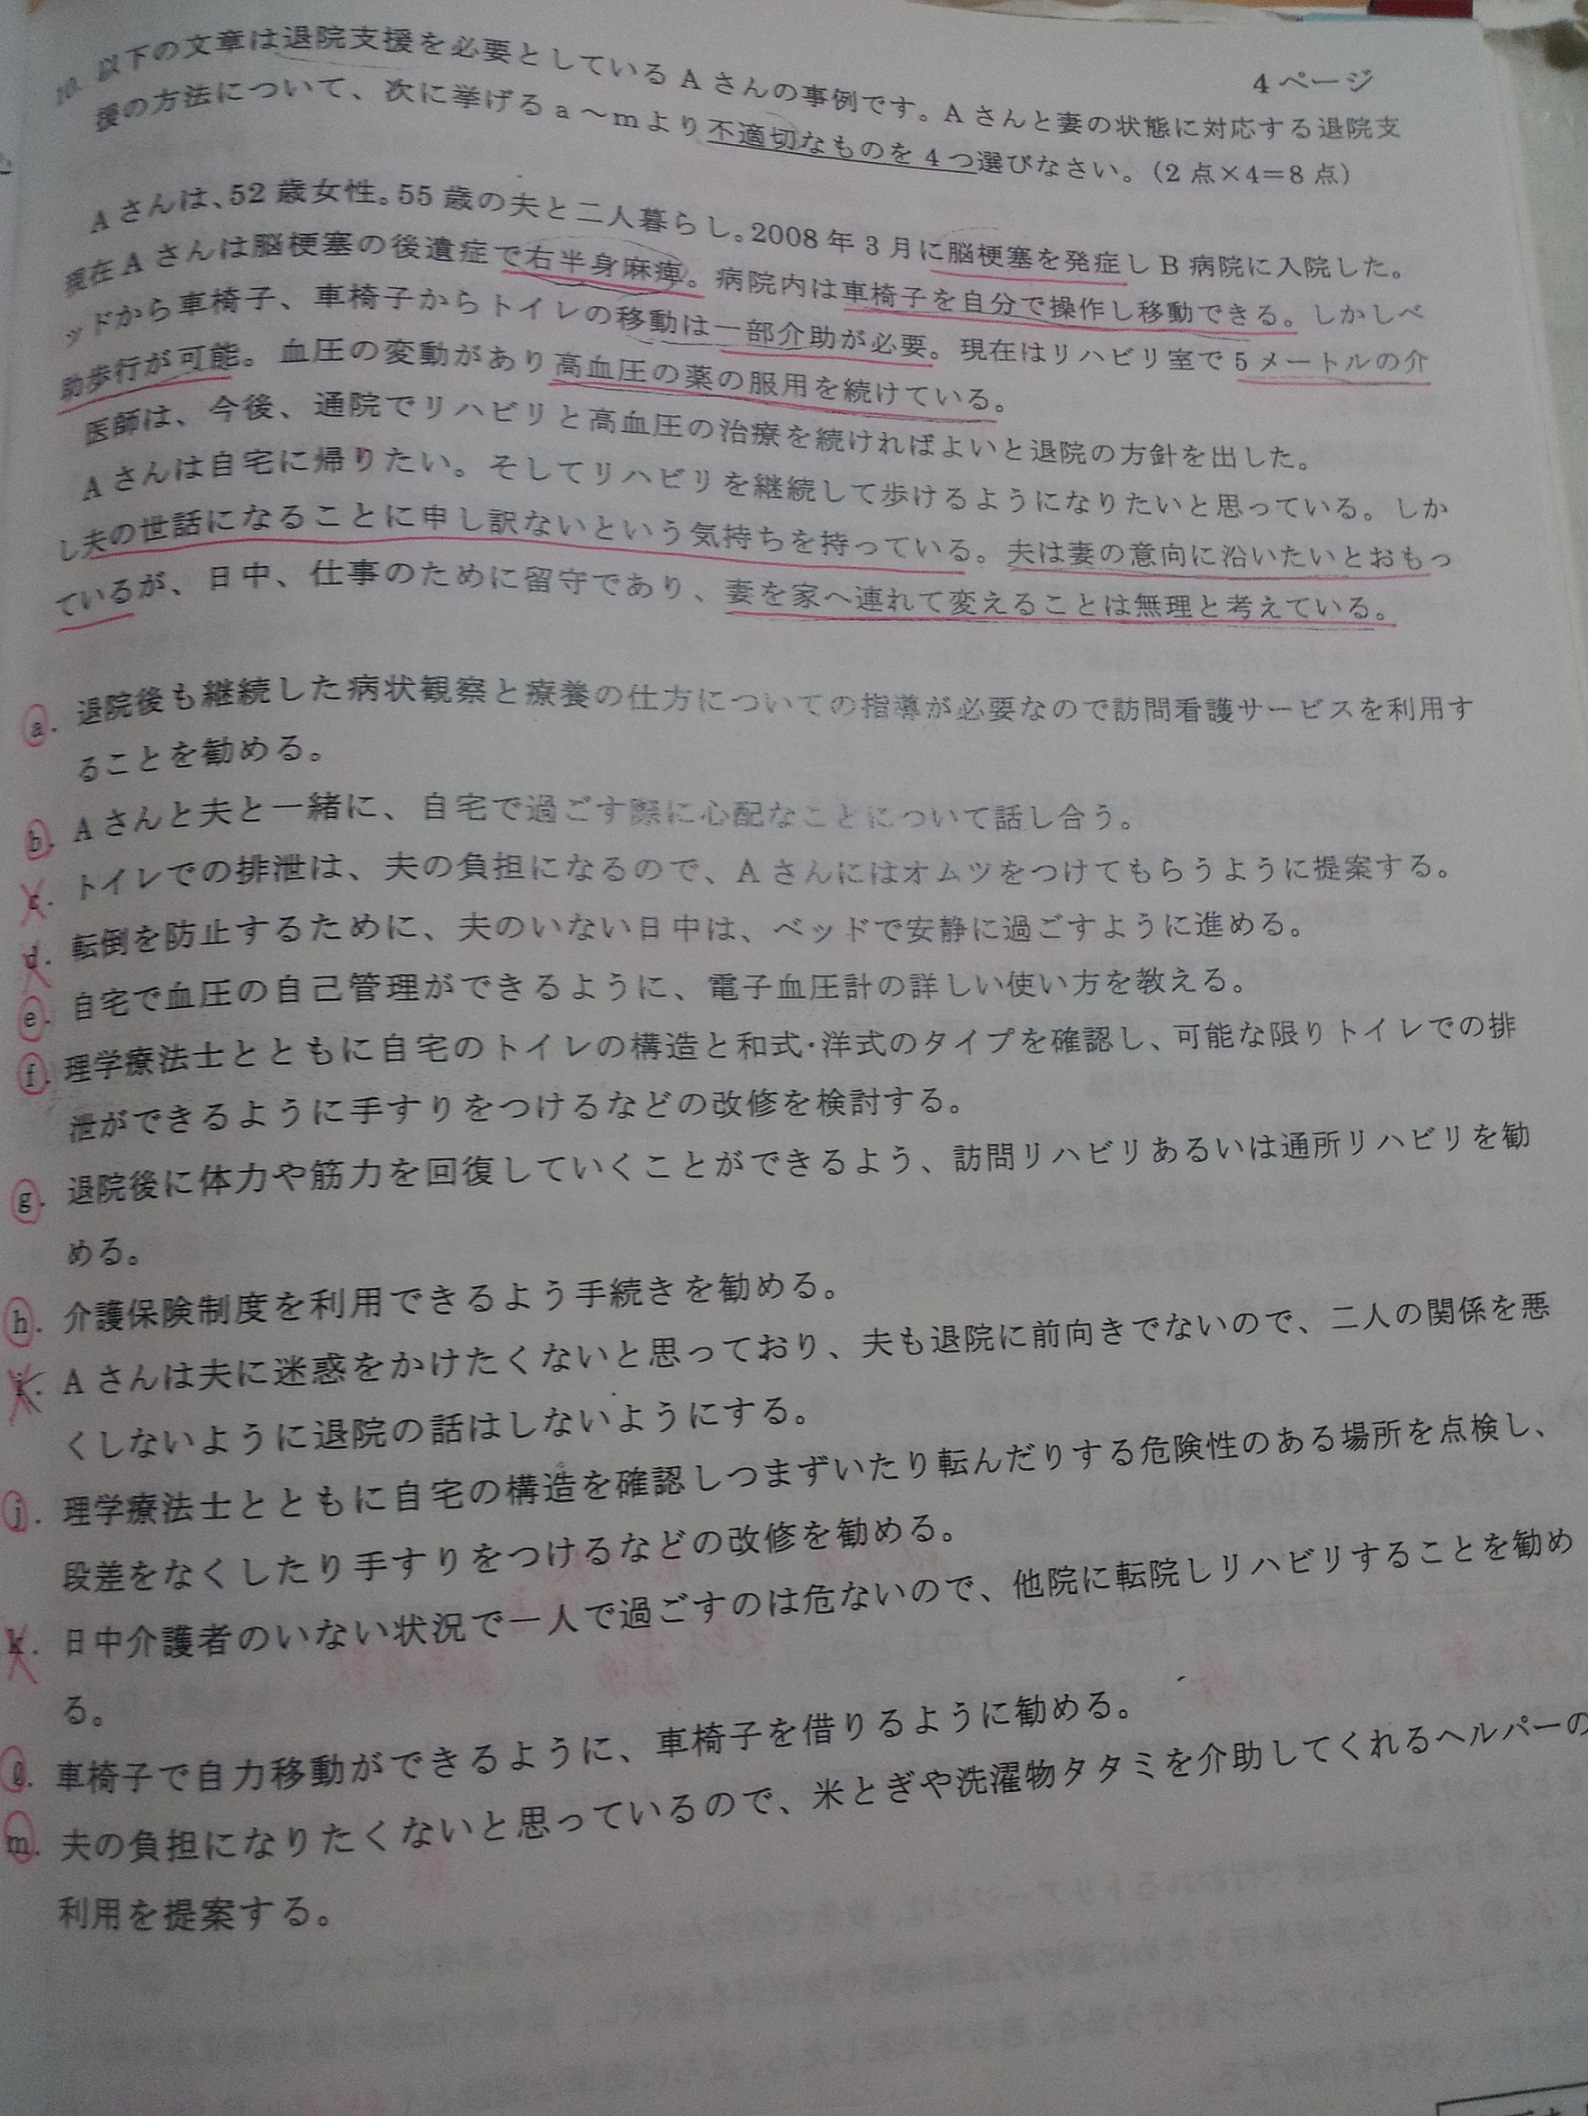 4ページ
10. 以下の文章は退院支援を必要としているAさんの事例です。Aさんと妻の状態に対応する退院支
援の方法について、次に挙げるa～mより不適切なものを4つ選びなさい。(2点×4=8点)
Aさんは、52歳女性。55歳の夫と二人暮らし。2008年3月に脳梗塞を発症しB病院に入院した。
現在Aさんは脳梗塞の後遺症で右半身麻痺。病院内は車椅子を自分で操作し移動できる。しかしベ
ッドから車椅子、車椅子からトイレの移動は一部介助が必要。現在はリハビリ室で5メートルの介
助歩行が可能。血圧の変動があり高血圧の薬の服用を続けている。
医師は、今後、通院でリハビリと高血圧の治療を続ければよいと退院の方針を出した。
Aさんは自宅に帰りたい。そしてリハビリを継続して歩けるようになりたいと思っている。しか
し夫の世話になることに申し訳ないという気持ちを持っている。夫は妻の意向に沿いたいとおもっ
ているが、日中、仕事のために留守であり、妻を家へ連れて変えることは無理と考えている。
a. 退院後も継続した病状観察と療養の仕方についての指導が必要なので訪問看護サービスを利用す
ることを勧める。
b. Aさんと夫と一緒に、自宅で過ごす際に心配なことについて話し合う。
c. トイレでの排泄は、夫の負担になるので、Aさんにはオムツをつけてもらうように提案する。
d. 転倒を防止するために、夫のいない日中は、ベッドで安静に過ごすように進める。
e. 自宅で血圧の自己管理ができるように、電子血圧計の詳しい使い方を教える。
f. 理学療法士とともに自宅のトイレの構造と和式・洋式のタイプを確認し、可能な限りトイレでの排
泄ができるように手すりをつけるなどの改修を検討する。
g. 退院後に体力や筋力を回復していくことができるよう、訪問リハビリあるいは通所リハビリを勧
める。
h. 介護保険制度を利用できるよう手続きを勧める。
i. Aさんは夫に迷惑をかけたくないと思っており、夫も退院に前向きでないので、二人の関係を悪
くしないように退院の話はしないようにする。
j. 理学療法士とともに自宅の構造を確認しつまずいたり転んだりする危険性のある場所を点検し、
段差をなくしたり手すりをつけるなどの改修を勧める。
k. 日中介護者のいない状況で一人で過ごすのは危ないので、他院に転院しリハビリすることを勧め
る。
ℓ. 車椅子で自力移動ができるように、車椅子を借りるように勧める。
m. 夫の負担になりたくないと思っているので、米とぎや洗濯物タタミを介助してくれるヘルパーの
利用を提案する。